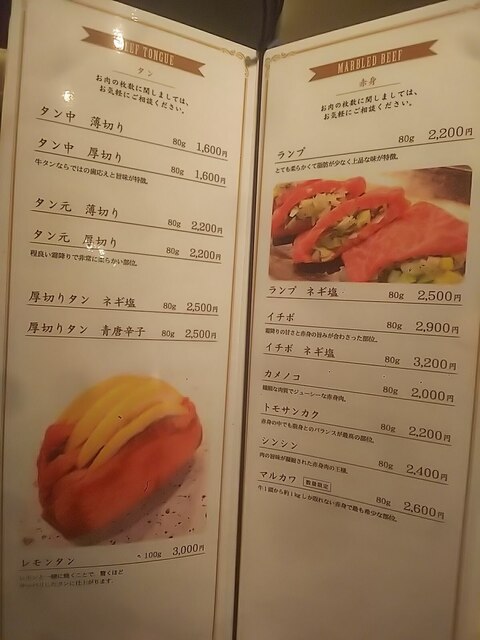 BEEF TONGUE
タン
お肉の枚数に関しましては、
お気軽にご相談ください。
タン中 薄切り 80g 1,600円
タン中 厚切り 80g 1,600円
牛タンならではの歯応えと旨味が特徴。
タン元 薄切り 80g 2,200円
タン元 厚切り 80g 2,200円
程良い霜降りで非常に柔らかい部位。
厚切りタン ネギ塩 80g 2,500円
厚切りタン 青唐辛子 80g 2,500円
レモンタン 100g 3,000円
レモンと一緒に焼くことで 驚くほど
MARBLED BEEF
赤身
お肉の枚数に関しましては、
お気軽にご相談ください。
ランプ 80g 2,200円
とても柔らかくて脂肪が少なく上品な味が特徴。
ランプ ネギ塩 80g 2,500円
イチボ 80g 2,900円
霜降りの甘さと赤身の旨みが合わさった部位。
イチボ ネギ塩 80g 3,200円
カメノコ 80g 2,000円
繊細な肉質でジューシーな赤身肉。
トモサンカク 80g 2,200円
赤身の中でも脂身とのバランスが最高の部位。
シンシン 80g 2,400円
肉の旨味が凝縮された赤身肉の王様。
マルカワ 数量限定 80g 2,600円
牛1頭から約1kgしか取れない赤身で最も希少な部位。